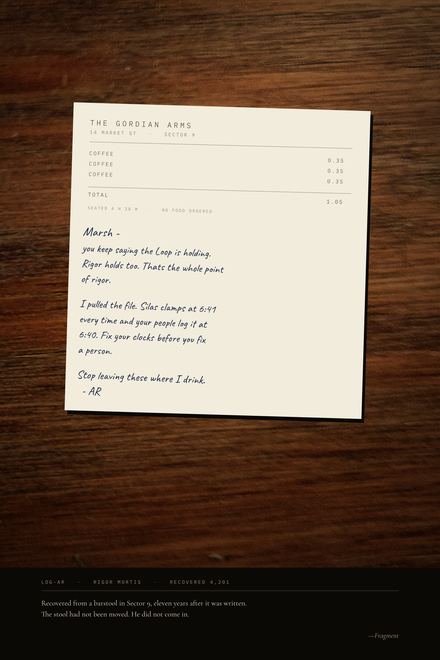 THE GORDIAN ARMS
14 MARKET ST · SECTOR 9
COFFEE 0.35
COFFEE 0.35
COFFEE 0.35
TOTAL 1.05
SEATED 4 H 38 M · NO FOOD ORDERED
Marsh -
you keep saying the Loop is holding.
Rigor holds too. Thats the whole point
of rigor.
I pulled the file. Silas clamps at 6:41
every time and your people log it at
6:40. Fix your clocks before you fix
a person.
Stop leaving these where I drink.
- AR
LOG-AR · RIGOR MORTIS · RECOVERED 4,201
Recovered from a barstool in Sector 9, eleven years after it was written.
The stool had not been moved. He did not come in.
—Fragment